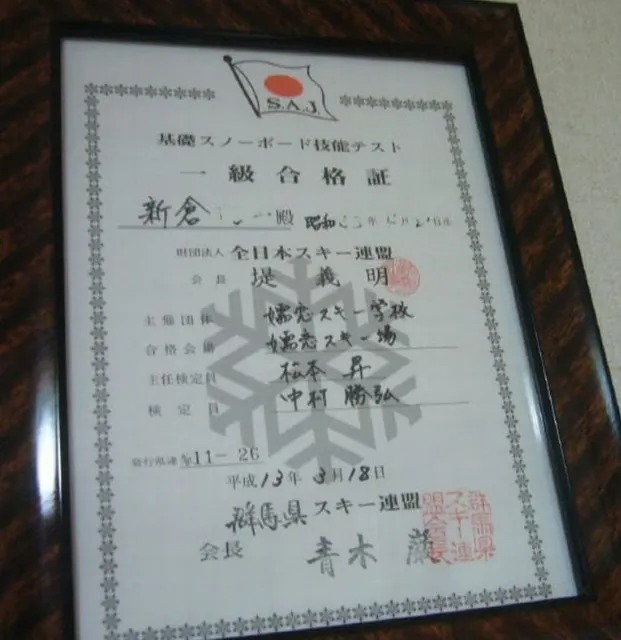 S.A.J
基礎スノーボード技能テスト
一級合格証
新倉 殿 昭和 年 月 日生
財団法人 全日本スキー連盟
会長 堤義明
主催団体 嬬恋スキー学校
合格会場 嬬恋スキー場
主任検定員 松本 昇
検定員 中村 勝弘
発行県連 №11-26
平成13年3月18日
群馬県スキー連盟
会長 青木
群馬県スキー連盟会長